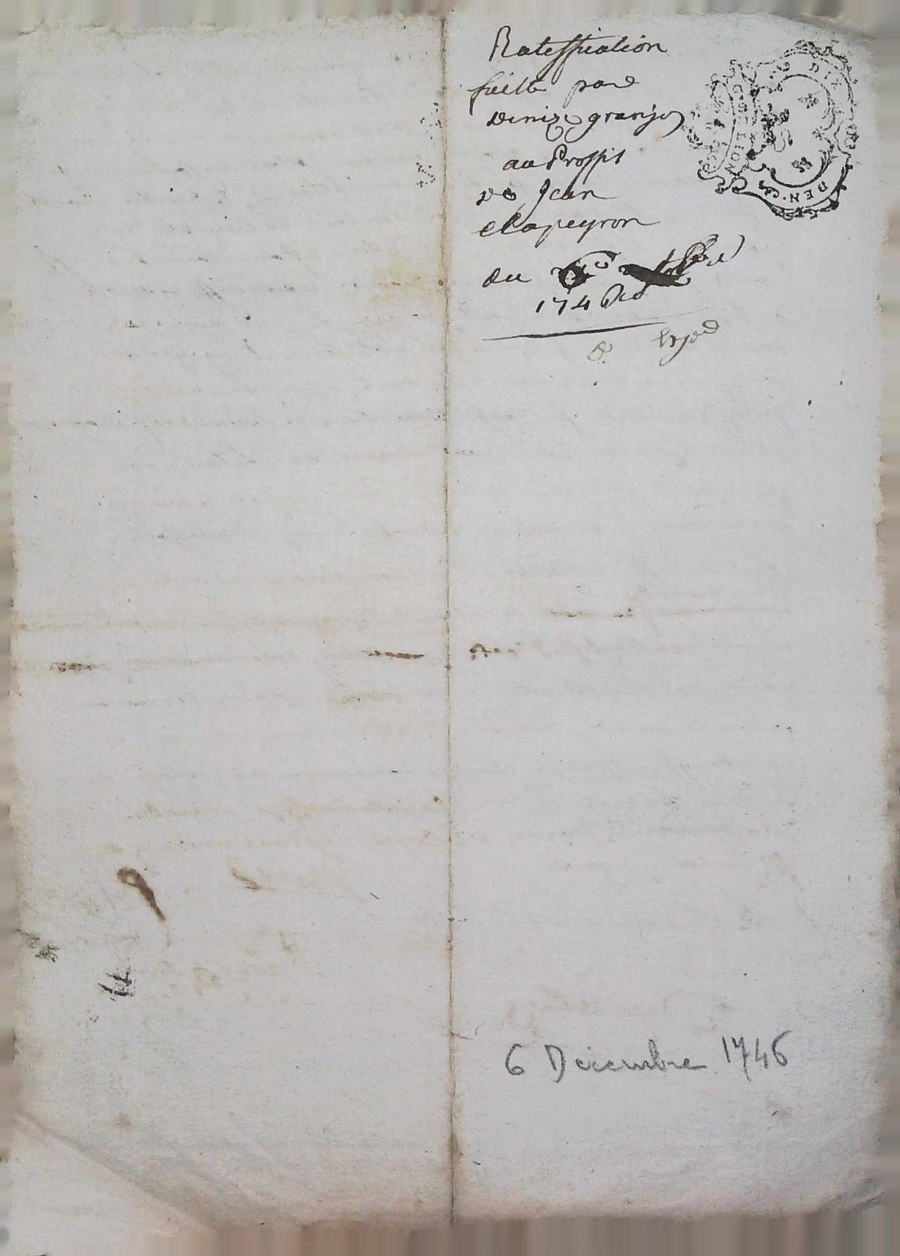 Ratiffication
faitte par
denize granjon
au Proffit
de Jean
Clapeyron
du 6e
1746
G. LION
DIX
DEN.
6 Décembre 1746